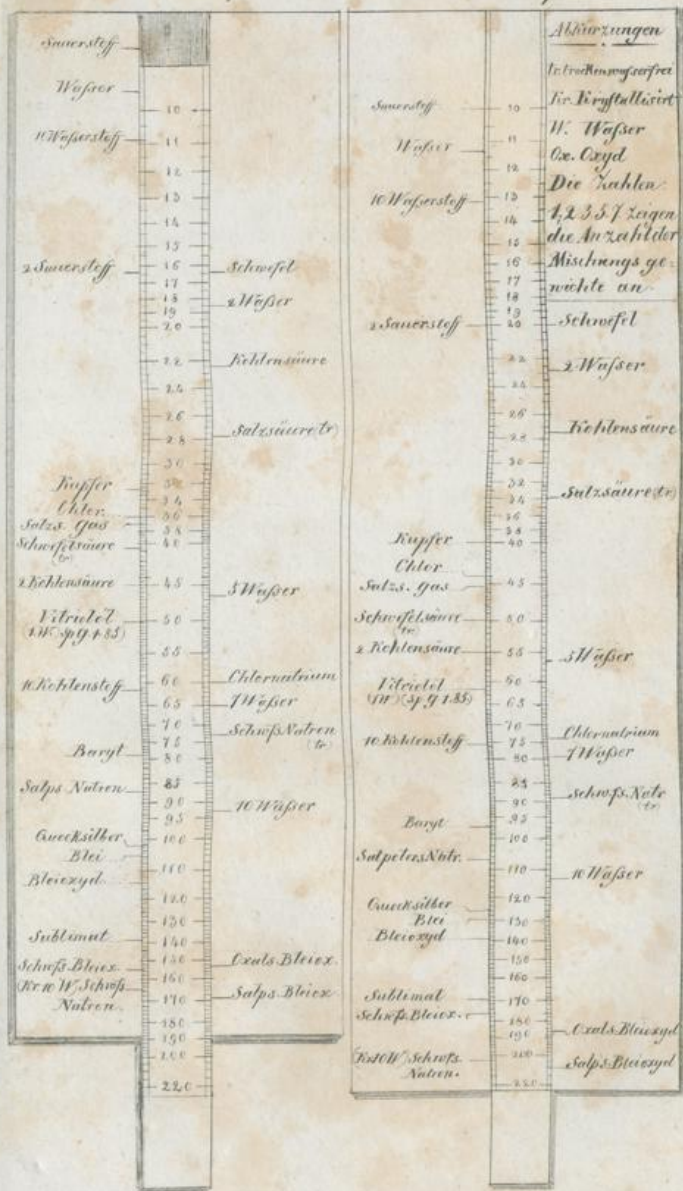 Sauerstoff
Waſser
10 Waſserstoff
2 Sauerstoff
Kupfer
Chlor
Salzs. gas
Schwefelsäure
(tr)
2 Kohlensäure
Vitriolöl
(1W) sp g 1.85)
10 Kohlenstoff
Baryt
Salps Natron
Quecksilber
Blei
Bleioxyd
Sublimat
Schwfs. Bleiox.
(Kr 10 W) Schwfs
Natron.
10
11
12
13
14
15
16
17
18
19
20
22
24
26
28
30
32
34
36
38
40
45
50
55
60
65
70
75
80
85
90
95
100
110
120
130
140
150
160
170
180
190
200
220
Schwefel
2 Waſser
Kohlensäure
Salzsäure (tr)
5 Waſser
Chlornatrium
7 Waſser
Schwfs Natron
(tr)
10 Waſser
Oxals. Bleiox.
Salps. Bleiox
Sauerstoff
Waſser
10 Waſserstoff
2 Sauerstoff
Kupfer
Chlor
Salzs. gas
Schwefelsäure
(tr)
2 Kohlensäure
Vitriolöl
(1W) (sp g 1.85)
10 Kohlenstoff
Baryt
Salpeters Natr.
Quecksilber
Blei
Bleioxyd
Sublimat
Schwfs. Bleiox.
(Kr 10 W) Schwfs
Natron.
10
11
12
13
14
15
16
17
18
19
20
22
24
26
28
30
32
34
36
38
40
45
50
55
60
65
70
75
80
85
90
95
100
110
120
130
140
150
160
170
180
190
200
220
Abkürzungen
tr. trocken waſserfrei
Kr. Krystallisirt
W. Waſser
Ox. Oxyd
Die Zahlen
1,2 3.5.7 zeigen
die Anzahl der
Mischungs ge-
wichte an
Schwefel
2 Waſser
Kohlensäure
Salzsäure (tr)
5 Waſser
Chlornatrium
7 Waſser
Schwfs. Natr
(tr)
10 Waſser
Oxals Bleioxyd
Salps. Bleioxyd